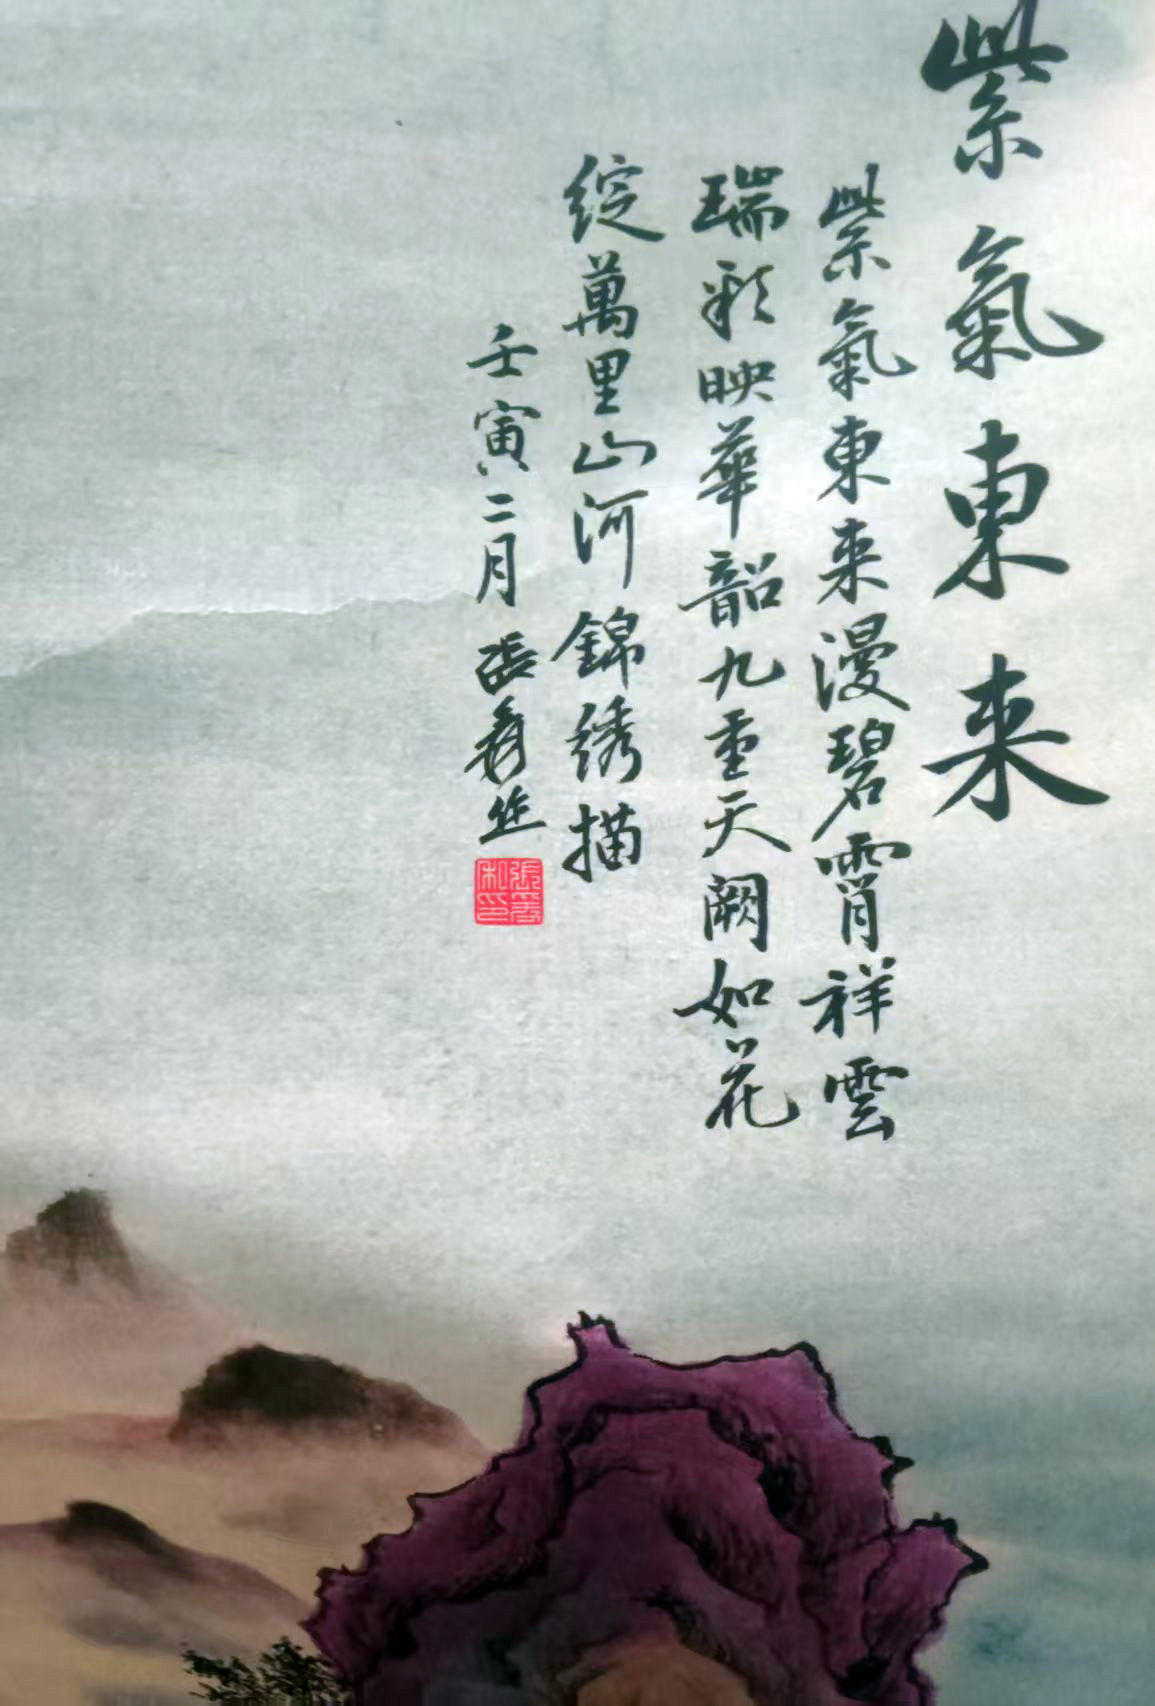 紫氣東来
紫氣東来漫碧霄祥雲
瑞彩映華韶九重天闕如花
綻萬里山河錦绣描
壬寅二月張秀丝
張秀
私印